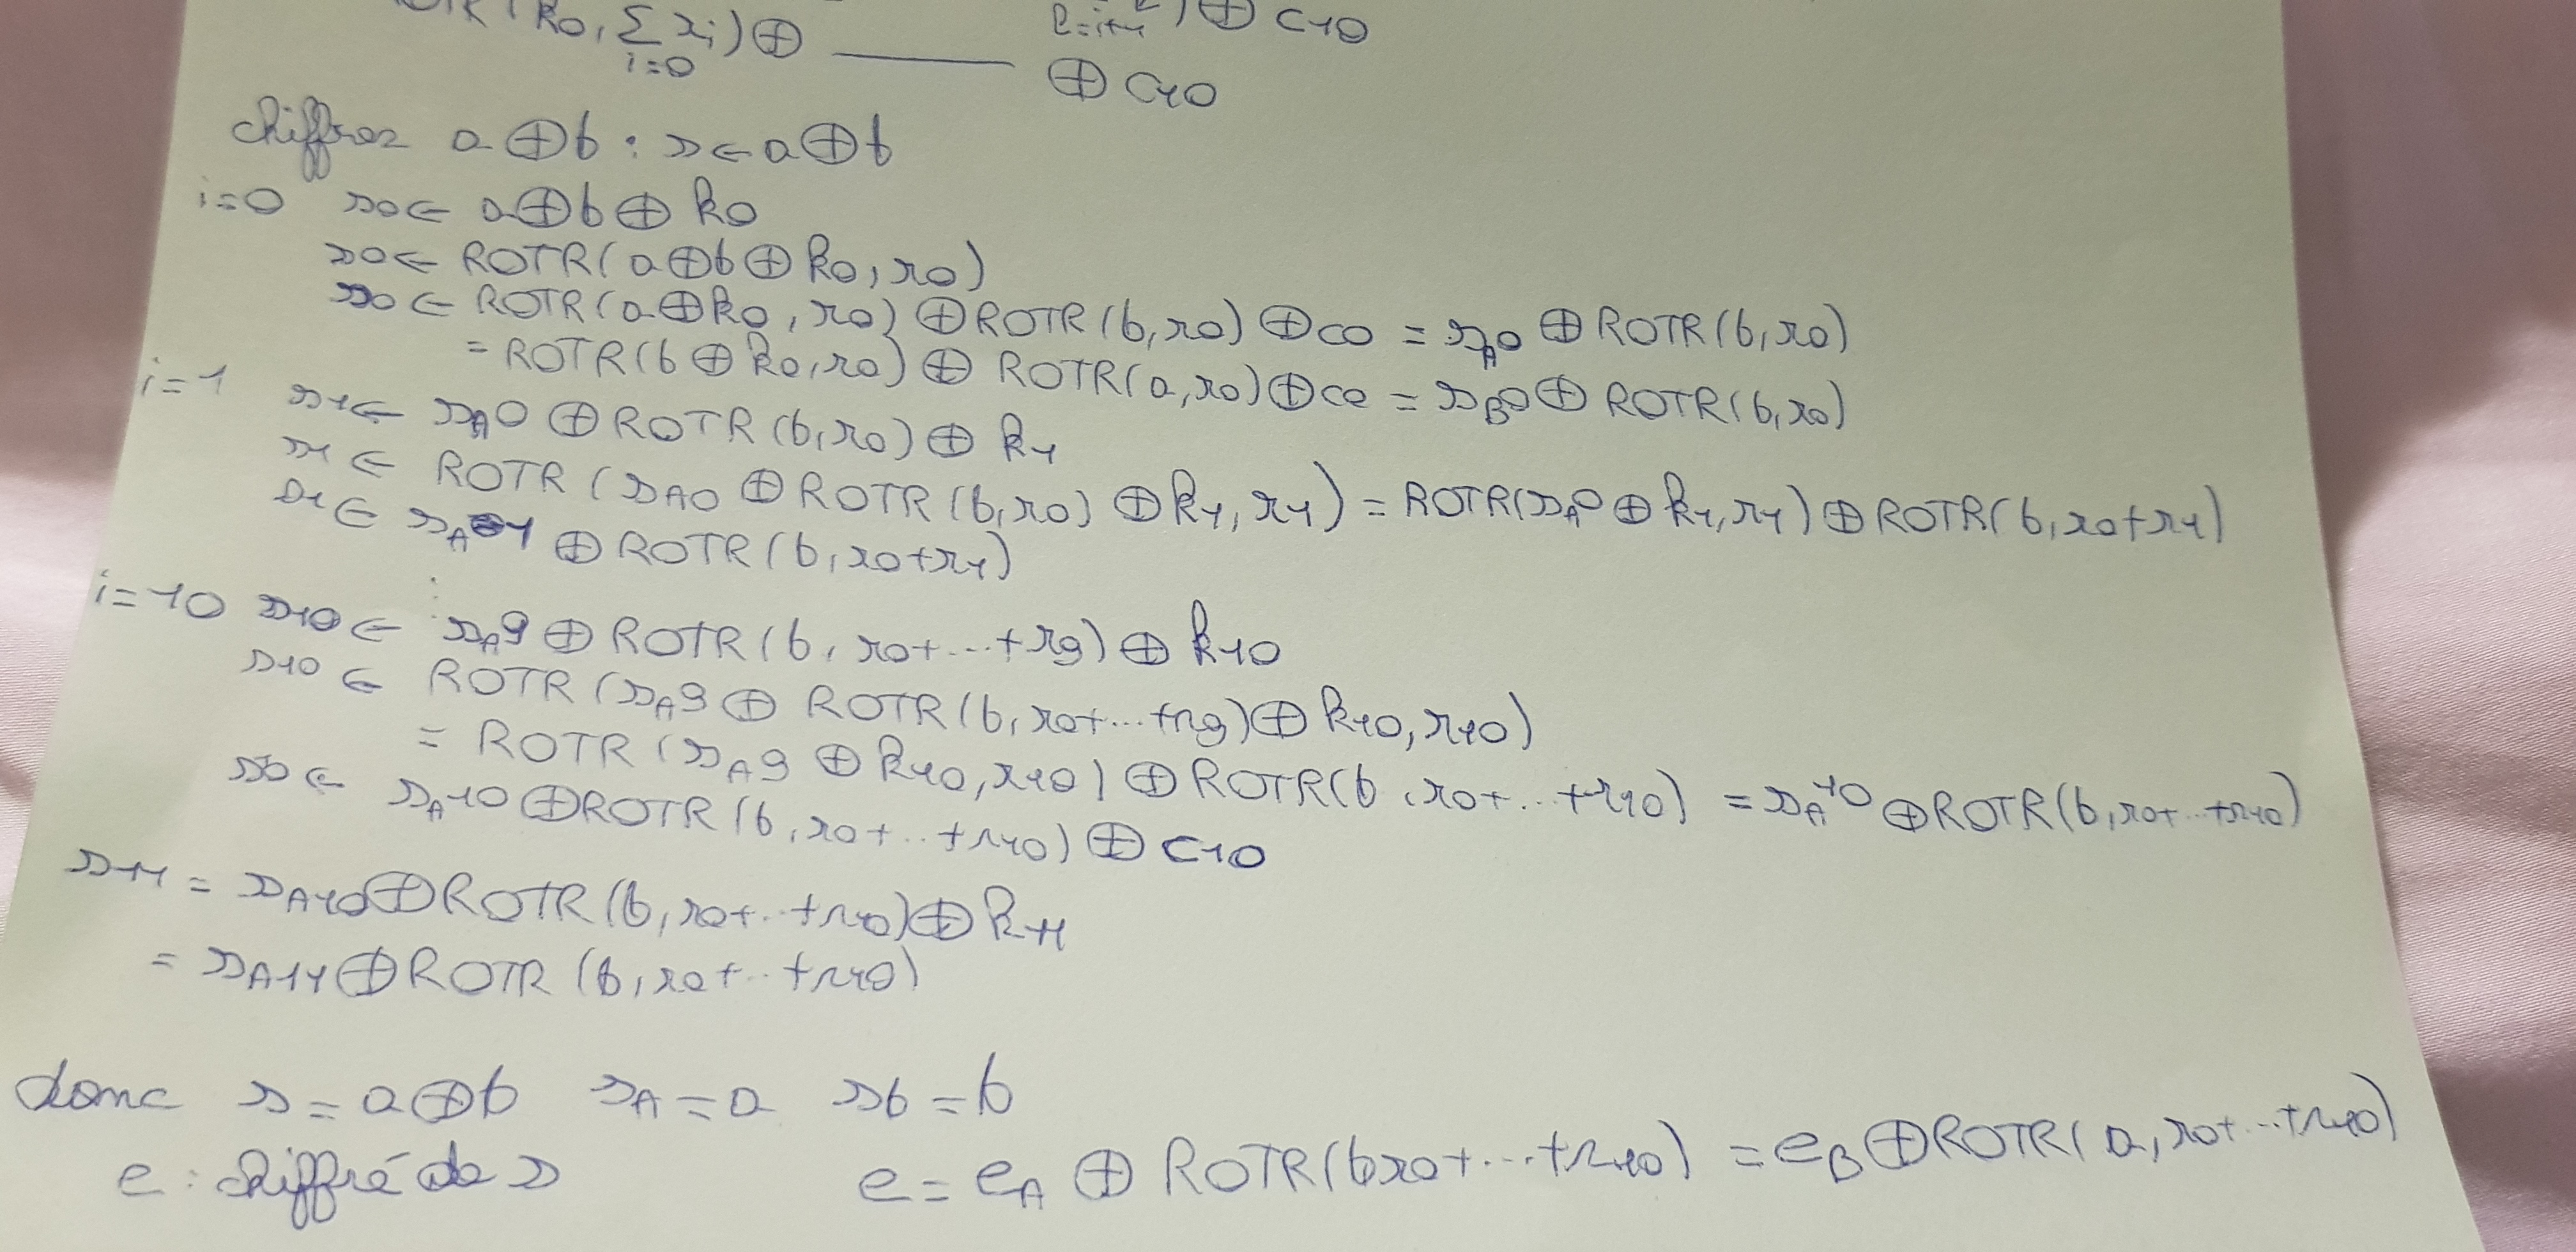 k0, Σ xi) ⊕ ———— ) ⊕ C10
i=0
⊕ C10
chiffrer a⊕b : s ← a⊕b
i=0 s0 ← a⊕b⊕k0
s0 ← ROTR(a⊕b⊕k0, r0)
s0 ← ROTR(a⊕k0, r0) ⊕ ROTR(b, r0) ⊕ c0 = sA0 ⊕ ROTR(b, r0)
= ROTR(b⊕k0, r0) ⊕ ROTR(a, r0) ⊕ c0 = sB0 ⊕ ROTR(b, r0)
i=1 s1 ← sA0 ⊕ ROTR(b, r0) ⊕ k1
s1 ← ROTR(sA0 ⊕ ROTR(b, r0) ⊕ k1, r1) = ROTR(sA0 ⊕ k1, r1) ⊕ ROTR(b, r0+r1)
s1 ← sA1 ⊕ ROTR(b, r0+r1)
i=10 s10 ← sA9 ⊕ ROTR(b, r0+...+r9) ⊕ k10
s10 ← ROTR(sA9 ⊕ ROTR(b, r0+...+r9) ⊕ k10, r10)
= ROTR(sA9 ⊕ k10, r10) ⊕ ROTR(b, r0+...+r10) = sA10 ⊕ ROTR(b, r0+...+r10)
s10 ← sA10 ⊕ ROTR(b, r0+...+r10) ⊕ C10
s11 = sA10 ⊕ ROTR(b, r0+...+r10) ⊕ k11
= sA11 ⊕ ROTR(b, r0+...+r10)
donc s = a⊕b sA = a sb = b
e : chiffré de s e = eA ⊕ ROTR(b r0+...+r10) = eB ⊕ ROTR(a, r0+...+r10)